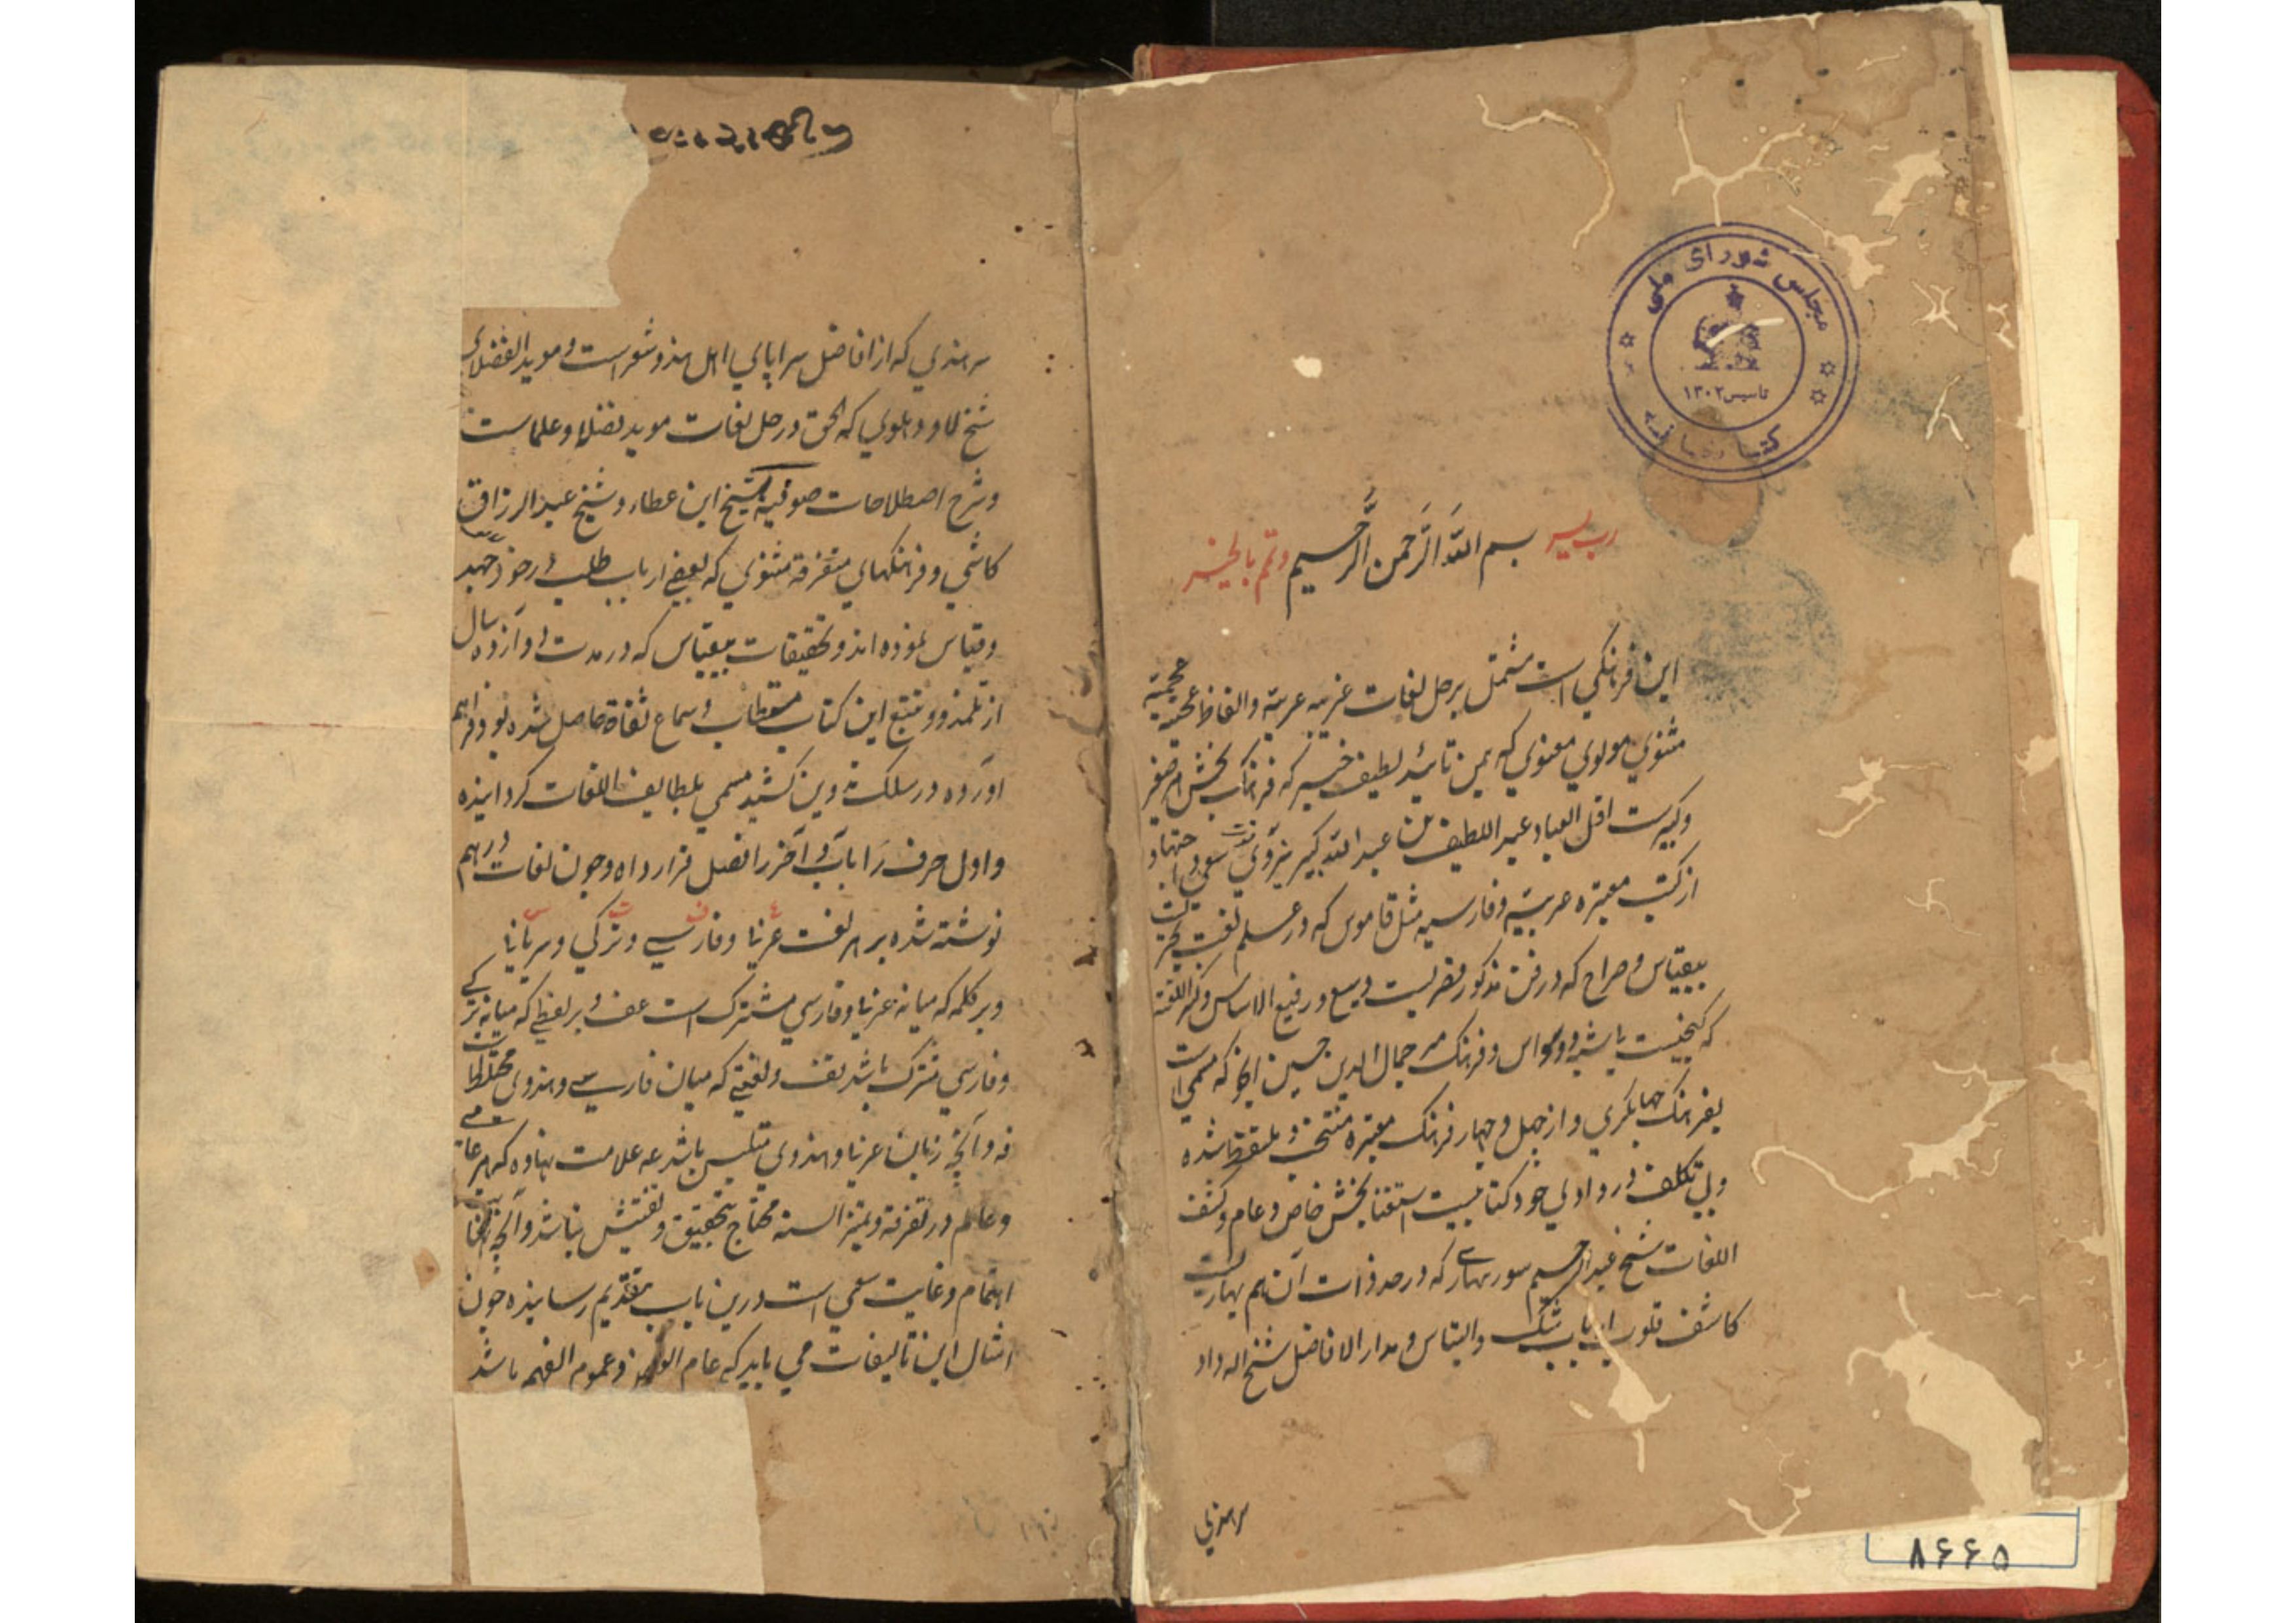 مجلس شورای ملی
تاسیس ۱۳۰۲
کتابخانه
رب یسر بسم الله الرحمن الرحیم وتم بالخیر
این فرهنکي است مشتمل برحل لغات غریبه عربیة والفاظ عجیبه عجمیة
مثنوي مولوي معنوي که بیمن تائید لطیف خبیر که فرهنک بخش هر صغیر
وکبیرست اقل العباد عبد اللطیف بن عبد الله کبیر بسعي اجتهاد
از کتب معتبره عربیه وفارسیه مثل قاموس که در علم لغت بحریست
بیقیاس وصراح که در فن مذکور قصریست وسیع ورفیع الاساس وکنز اللغة
که کنجیست وفرهنک میر جمال الدین حسین انجو که مسمي است
بفرهنک جهانکیري واز چهل وچهار فرهنک معتبره منتخب وملتقط شده
وبي تکلف در وادي خود کتابیست استغنا بخش خاص وعام وکشف
اللغات شیخ عبد الرحیم سور بهاری که در حد ذات آن هم بهاریست
کاشف قلوب ارباب شک والتباس ومدار الافاضل شیخ اله داد
سرهندي
سرهندي که از افاضل سراپاي اهل هند وشعراست ومويد الفضلاي
شیخ لاد دهلوي که الحق در حل لغات مويد فضلا وعلماست
وشرح اصطلاحات صوفیه شیخ ابن عطاء وشیخ عبد الرزاق
کاشي وفرهنکهاي متفرقه مثنوي که بعضے ارباب طلب در خور جهد
وقیاس نموده اند وتحقیقات بیقیاس که در مدت دوازده سال
از تلمذ وتتبع این کتاب مستطاب وسماع ثقاة حاصل شده بود فراهم
آورده در سلک تدوین کشید مسمي بلطایف اللغات کردانیده
واول حرف را باب وآخر را فصل قرار داده وچون لغات درهم
نوشته شده بر هر لغت عربي وفارسي وترکي وسریاني
وبر کلمه که میانه عربي وفارسي مشترک است عف وبر لفظے که میانه ترکے
وفارسي مشترک باشد تف ولغتے که میان فارسے وهندوي مختلط است
فه وآنچه زبان عربي وهندوي ملتبس باشد عه علامت نهاده که هر عامے
وعالم در تفرقه وتمیز السنه محتاج بتحقیق وتفتیش نباشد وآنچه
اهتمام وغایت سعي است درین باب بتقدیم رسانیده چون
امثال این تالیفات مي باید که عام وعموم الفهم باشد
۸۶۶۵